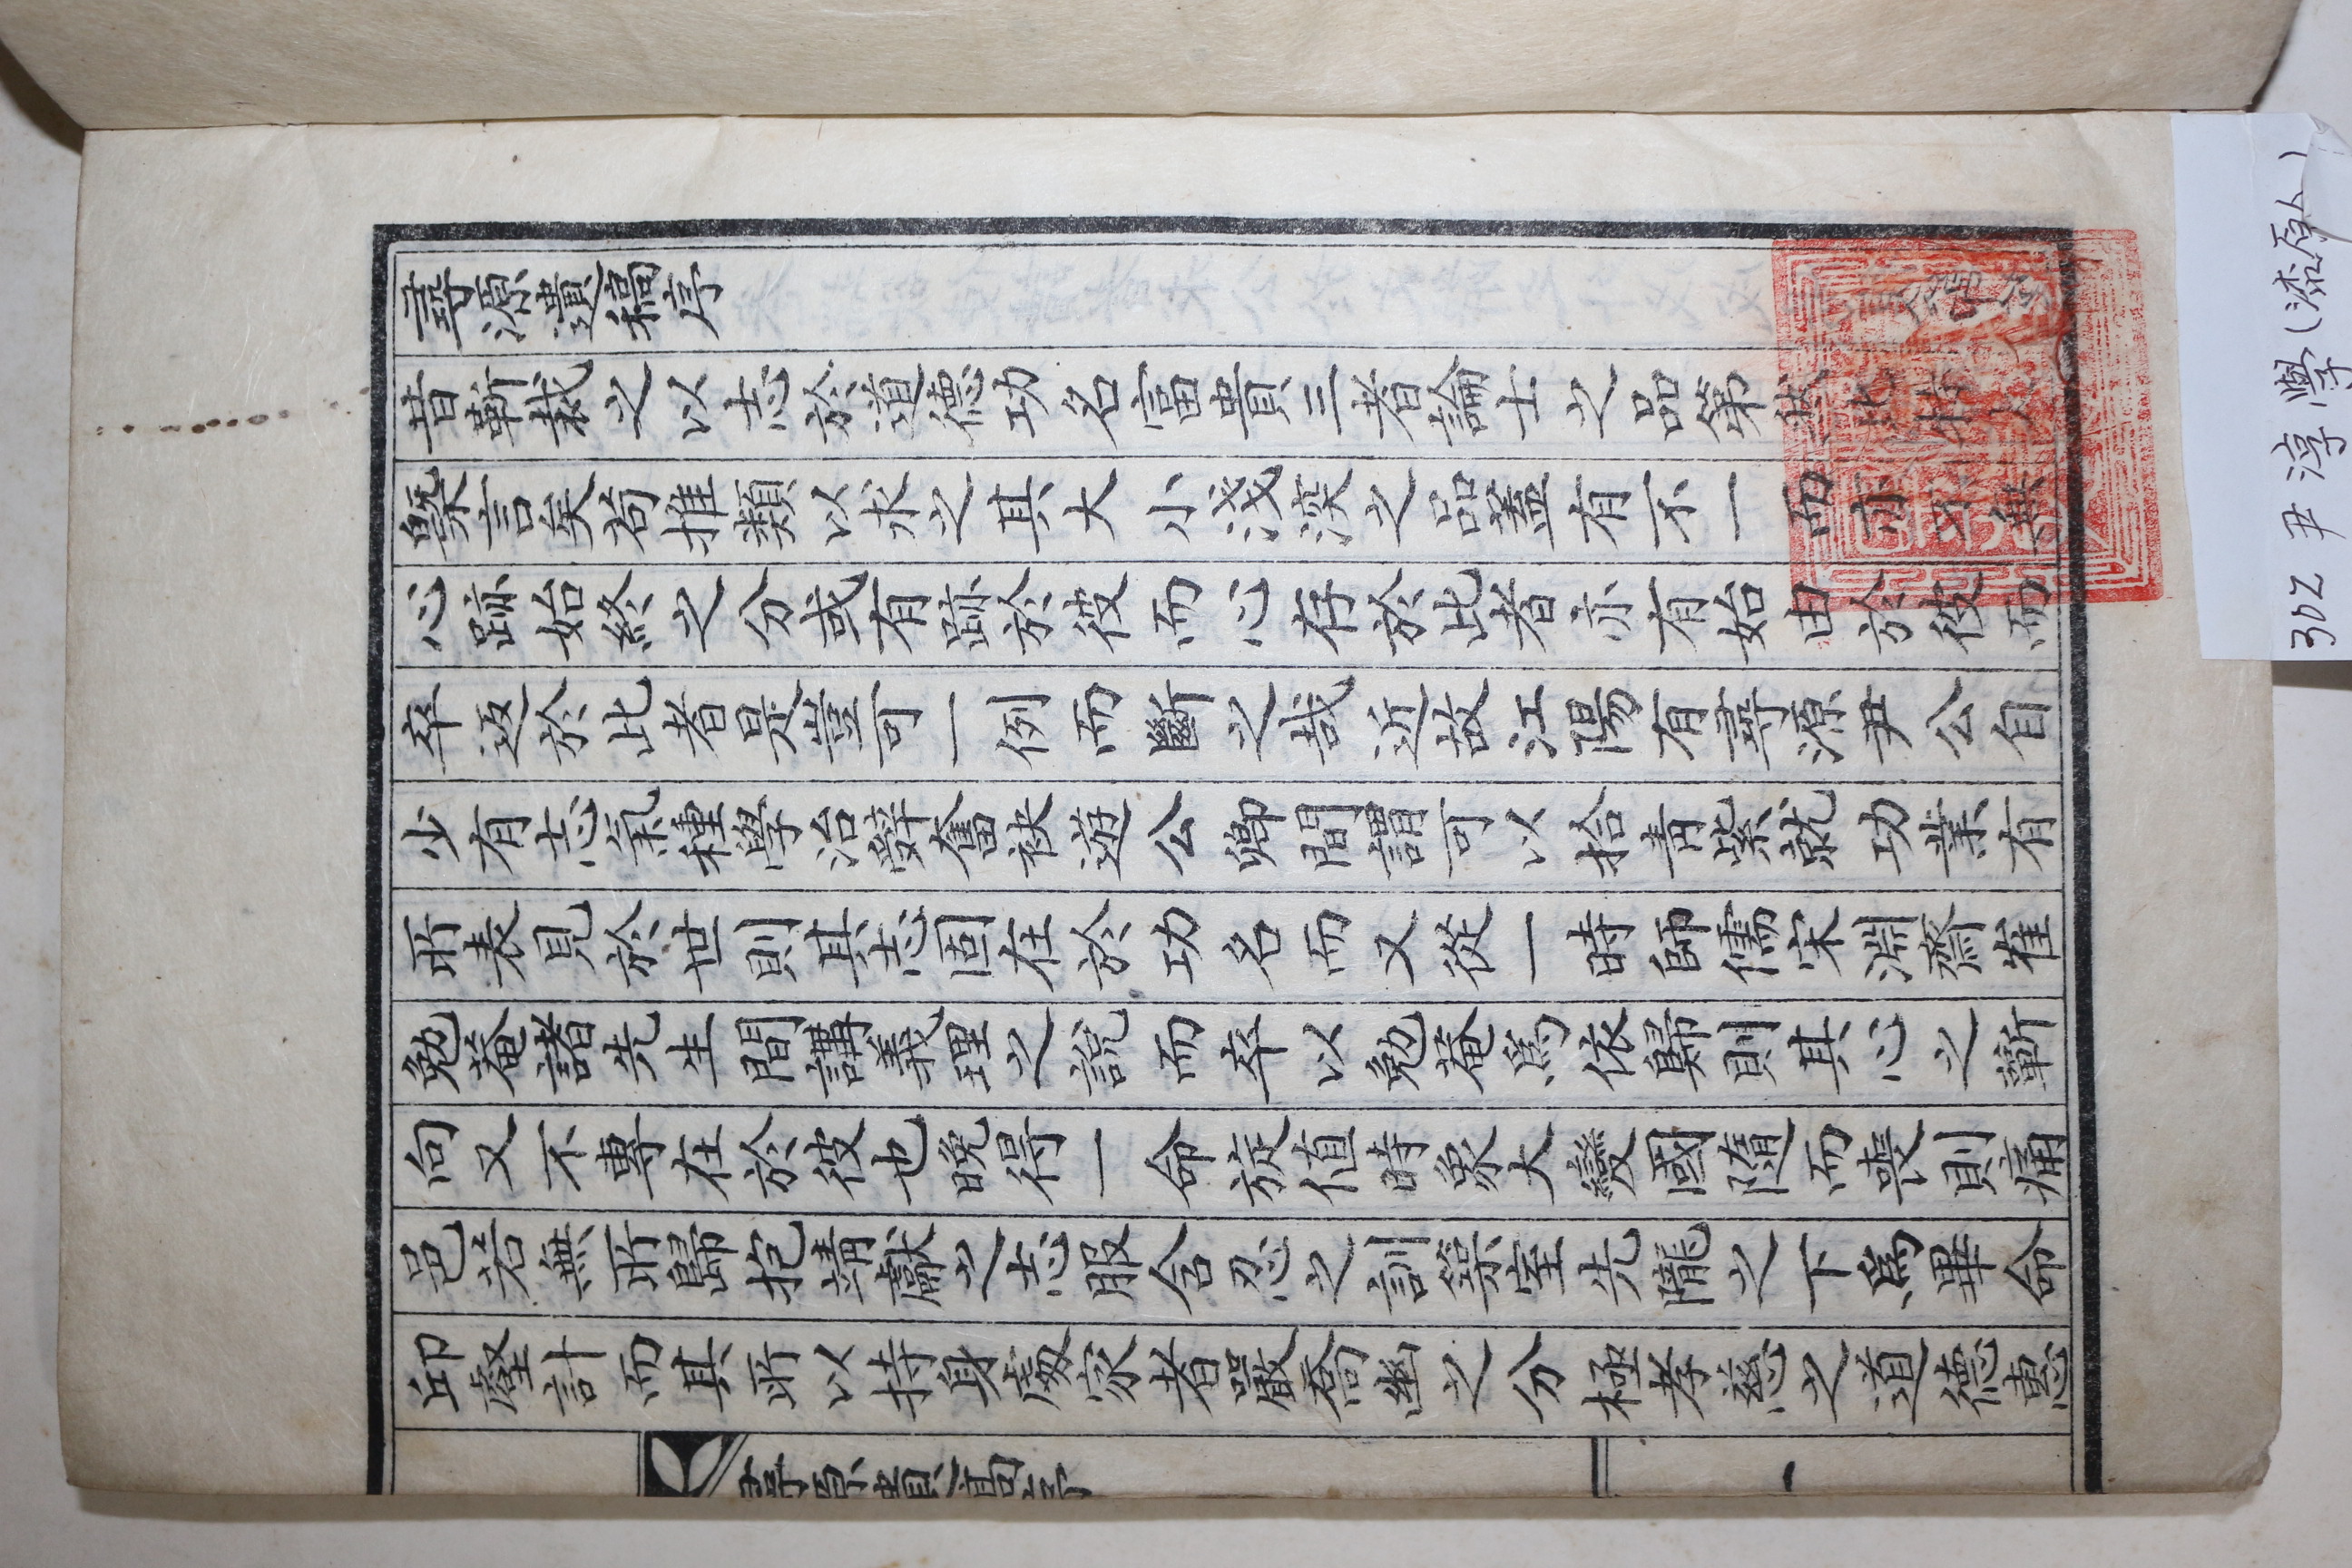 尋源遺稿序
昔靳裁之以志於道德功名富貴三者論士之品第然此特大
槩言矣苟推類以求之其大小淺深之品蓋有不一而亦不無
心跡始終之分或有跡於彼而心存於此者亦有始由於彼而
卒返於此者是豈可一例而斷之哉近故江陽有尋源尹公自
少有志氣種學治辭奮袂遊公卿間謂可以拾青紫就功業有
所表見於世則其志固在於功名而又從一時師儒宋淵齋崔
勉菴諸先生間講義理之說而卒以勉菴爲依歸則其心之蘄
向又不專在於彼也晩得一命旋値時象大變國隨而喪則痛
邑若無所歸抱靖獻之志服含忍之訓築室先隴之下爲畢命
邱壑計而其所以持身處家者嚴喬幽之分極孝慈之道德惠
尋源遺稿序
一
302 尹淳學(漆原人)